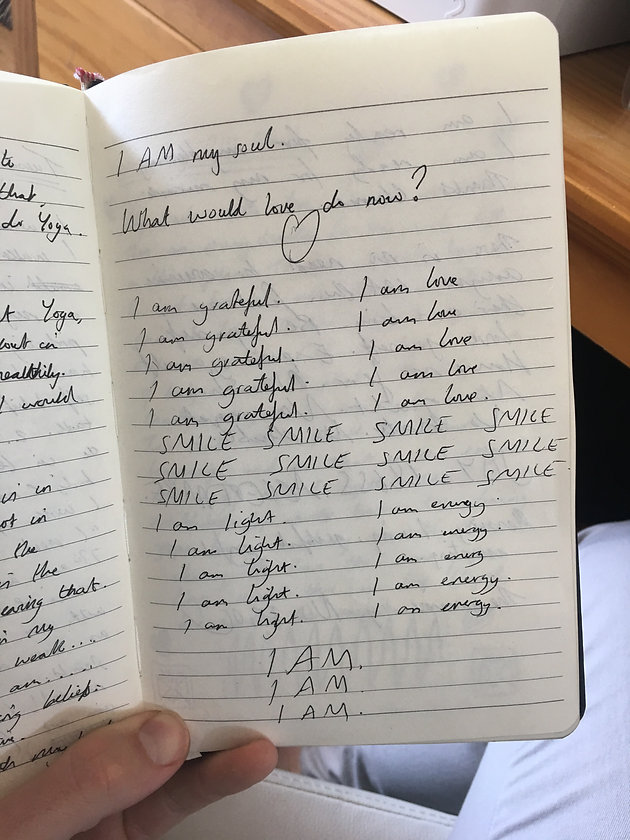 to
that,
do Yoga.
Yoga,
out in
healthily.
I would
is in
not in
the
in the
earing that.
in my
weak....
am.....
belief.
I AM my soul.
What would love do now?
I am grateful. I am love
I am grateful. I am love
I am grateful. I am love
I am grateful. I am love
I am grateful. I am love.
SMILE SMILE SMILE SMILE
SMILE SMILE SMILE SMILE
SMILE SMILE SMILE SMILE
I am light. I am energy.
I am light. I am energy.
I am light. I am energy
I am light. I am energy.
I am light. I am energy.
I AM.
I AM.
I AM.